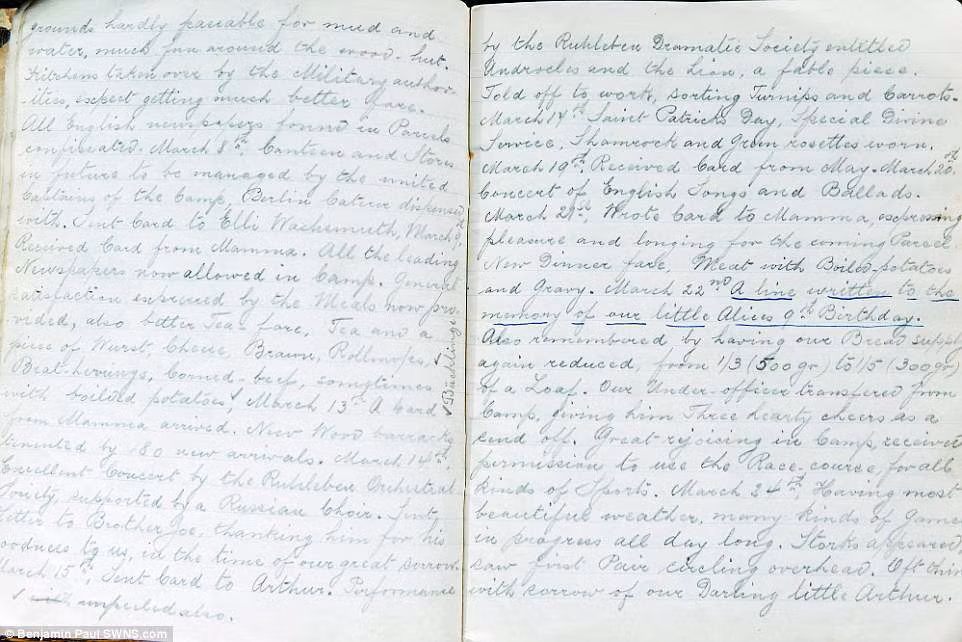 grounds hardly passable for mud and
water, much fun around the wood-hut.
Kitchens taken over by the Military author-
ities, expect getting much better fare.
All English newspapers found in Parcels
confiscated. March 8th, Canteen and Stores
in future to be managed by the united
Captains of the Camp, Berlin Caterer dispensed
with. Sent Card to Elli Wachsmuth, March 9th
Received Card from Mamma. All the leading
Newspapers now allowed in Camp. General
satisfaction expressed by the Meals now pro-
vided, also better Tea fare, Tea and a
piece of Wurst, Cheese, Brawn, Rollmopse, ✓
Brat-herrings, Corned-beef, somtimes
with boiled potatoes, March 13th A Card
✓ Bücklinge
from Mamma arrived. New Wood barracks
tenented by 180 new arrivals. March 14th,
Excellent Concert by the Ruhleben Orchestral
Society, supported by a Russian Choir. Sent
letter to Brother Joe, thanking him for his
goodness to us, in the time of our great sorrow.
March 15th, Sent Card to Arthur. Performance
✓ unpeiled also.
by the Ruhleben Dramatic Society entitled
Androcles and the Lion, a fable piece.
Told off to work, sorting Turnips and Carrots.
March 17th Saint Patricks Day, Special Divine
Service, Shamrock and Green rosettes worn.
March 19th Received Card from May. March 20th
Concert of English Songs and Ballads.
March 21st, Wrote Card to Mamma, expressing
pleasure and longing for the coming Parcel
New Dinner fare, Meat with Boiled potatoes
and Gravy. March 22nd A line written to the
memory of our little Alices 9th Birthday.
Also remembered by having our Bread supply
again reduced, from 1/3 (500 gr) to 1/5 (300 gr)
of a Loaf. Our Under-officer transfered from
Camp, giving him Three hearty cheers as a
send off. Great rejoicing in Camp, received
permission to use the Race-course, for all
kinds of Sports. March 24th Having most
beautiful weather, many kinds of Games
in progress all day long. Storks appeared,
saw first Pair circling overhead. Oft think
with sorrow of our Darling little Arthur.
© Benjamin Paul SWNS.com